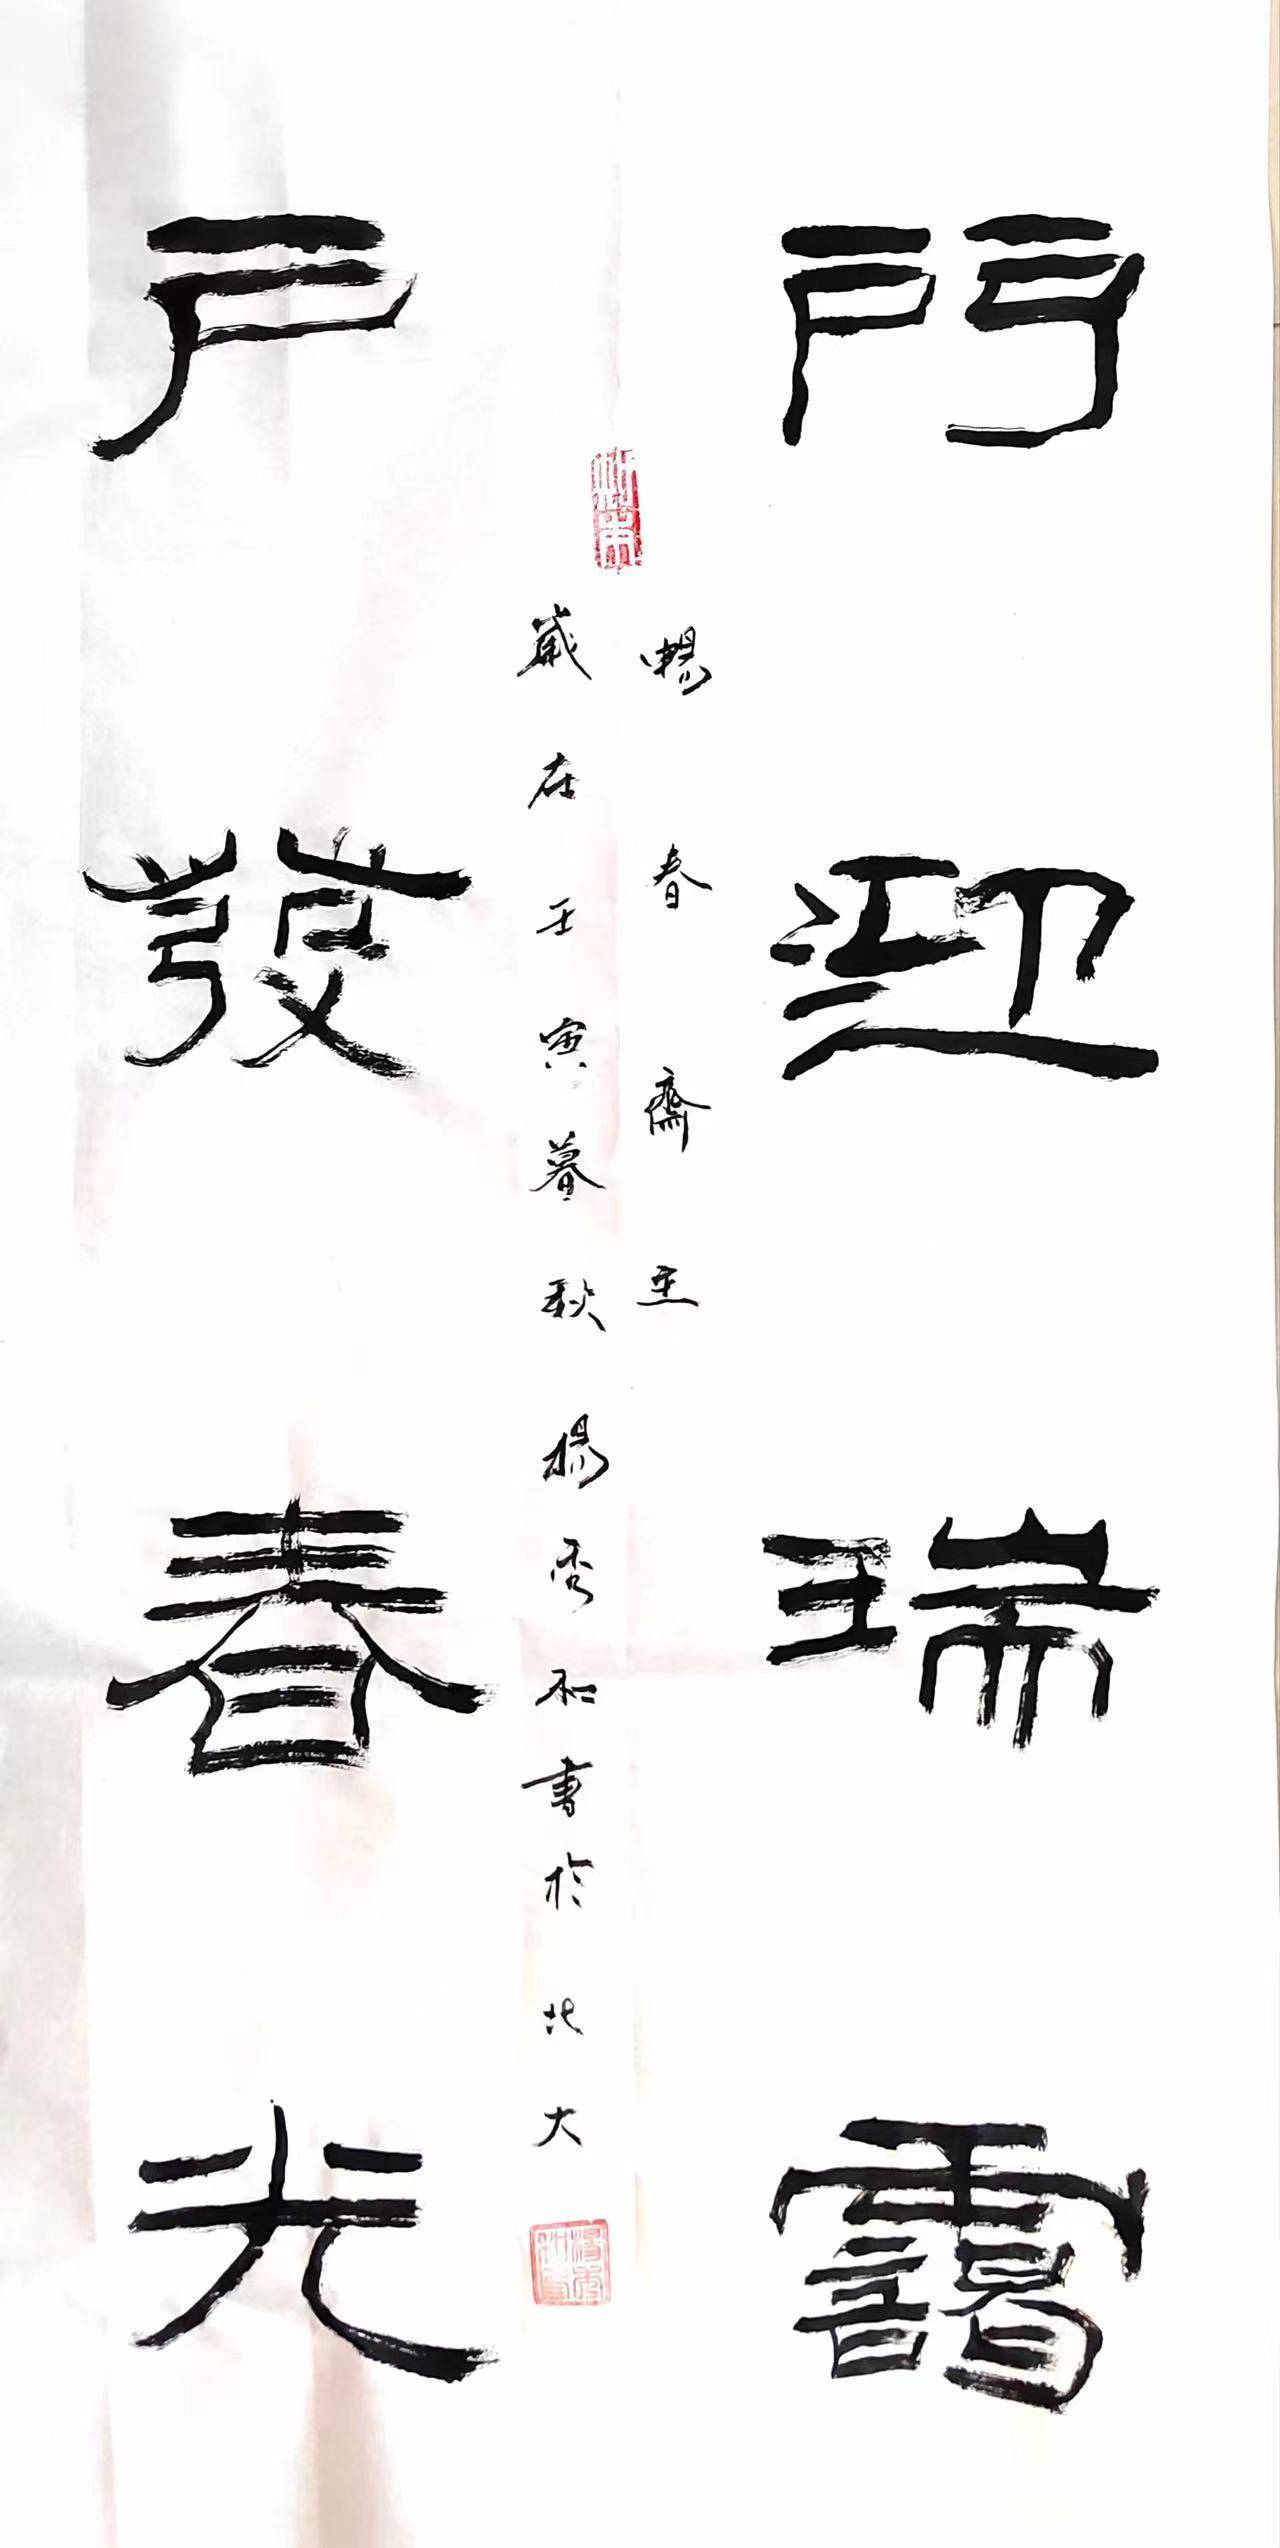 門迎瑞靄
暢春齋主
歲在壬寅暮秋楊秀和書於北大
戶發春光